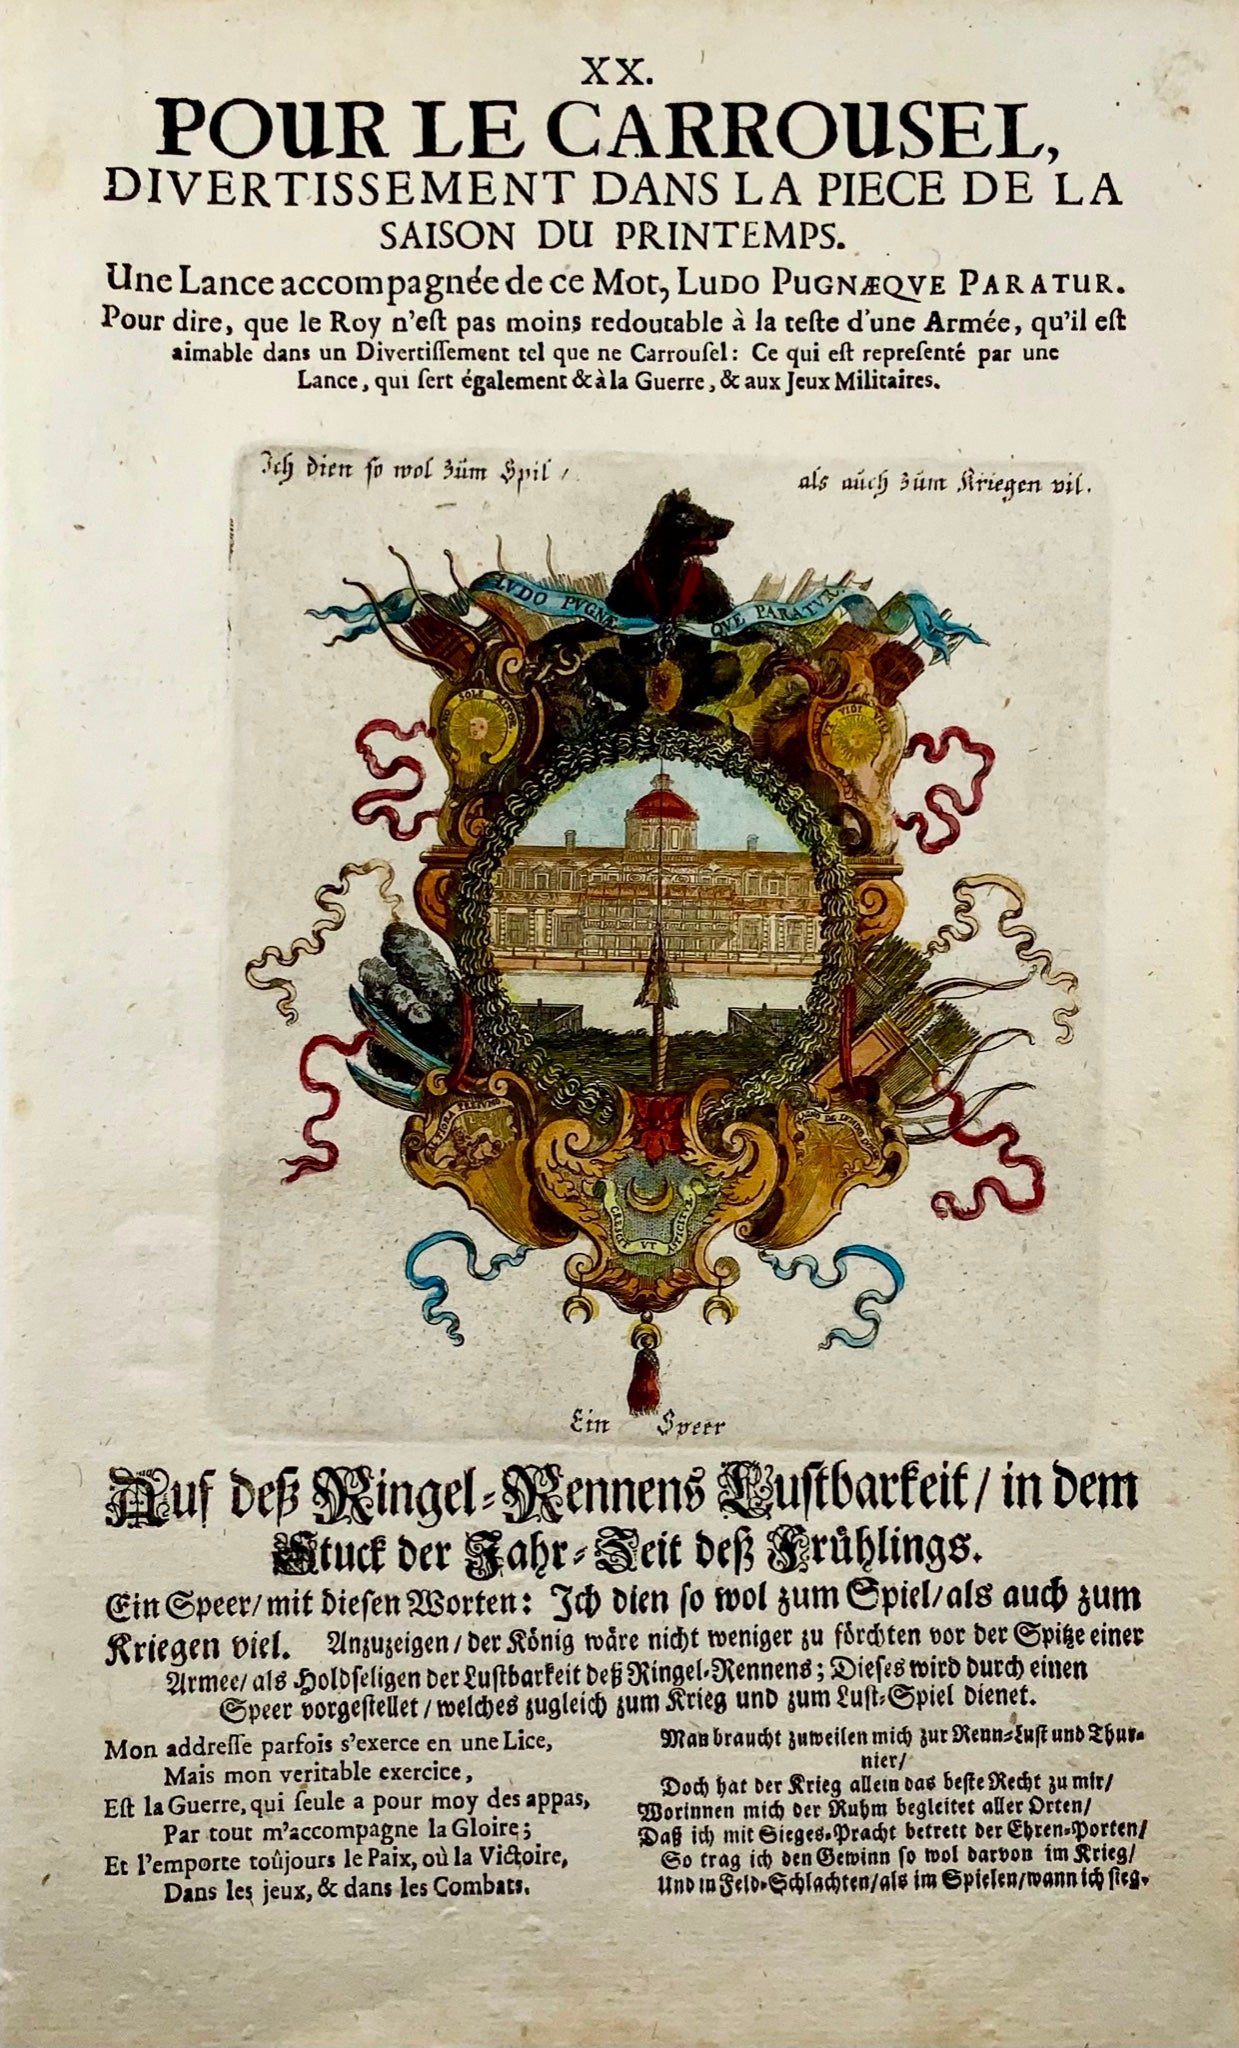 XX.
POUR LE CARROUSEL,
DIVERTISSEMENT DANS LA PIECE DE LA
SAISON DU PRINTEMPS.
Une Lance accompagnée de ce Mot, LUDO PUGNÆQVE PARATUR.
Pour dire, que le Roy n'eſt pas moins redoutable à la teſte d'une Armée, qu'il eſt
aimable dans un Divertiſſement tel que ne Carrouſel: Ce qui eſt repreſenté par une
Lance, qui ſert également & à la Guerre, & aux Jeux Militaires.
Ich dien so wol zům Spil / als aůch zům Kriegen vil.
LVDO PVGNÆ QVE PARATVR.
SOLE MINOR.
VT VIDI VICI
CRESCIT VT ASPICITVR
Ein Speer
Auf deß Ringel-Rennens Lustbarkeit/ in dem
Stuck der Jahr-Zeit deß Frühlings.
Ein Speer/ mit diesen Worten: Ich dien so wol zum Spiel/ als auch zum
Kriegen viel. Anzuzeigen/ der König wäre nicht weniger zu förchten vor der Spitze einer
Armee/ als Holdseligen der Lustbarkeit deß Ringel-Rennens; Dieses wird durch einen
Speer vorgestellet/ welches zugleich zum Krieg und zum Lust-Spiel dienet.
Mon addreſſe parfois s'exerce en une Lice,
Mais mon veritable exercice,
Eſt la Guerre, qui ſeule a pour moy des appas,
Par tout m'accompagne la Gloire;
Et l'emporte toûjours le Paix, où la Victoire,
Dans les jeux, & dans les Combats.
Man braucht zuweilen mich zur Renn-Lust und Thur-
nier/
Doch hat der Krieg allein das beste Recht zu mir/
Worinnen mich der Ruhm begleitet aller Orten/
Daß ich mit Sieges-Pracht betrett der Ehren-Porten/
So trag ich den Gewinn so wol darvon im Krieg/
Und in Feld-Schlachten/ als im Spielen/ wann ich sieg.